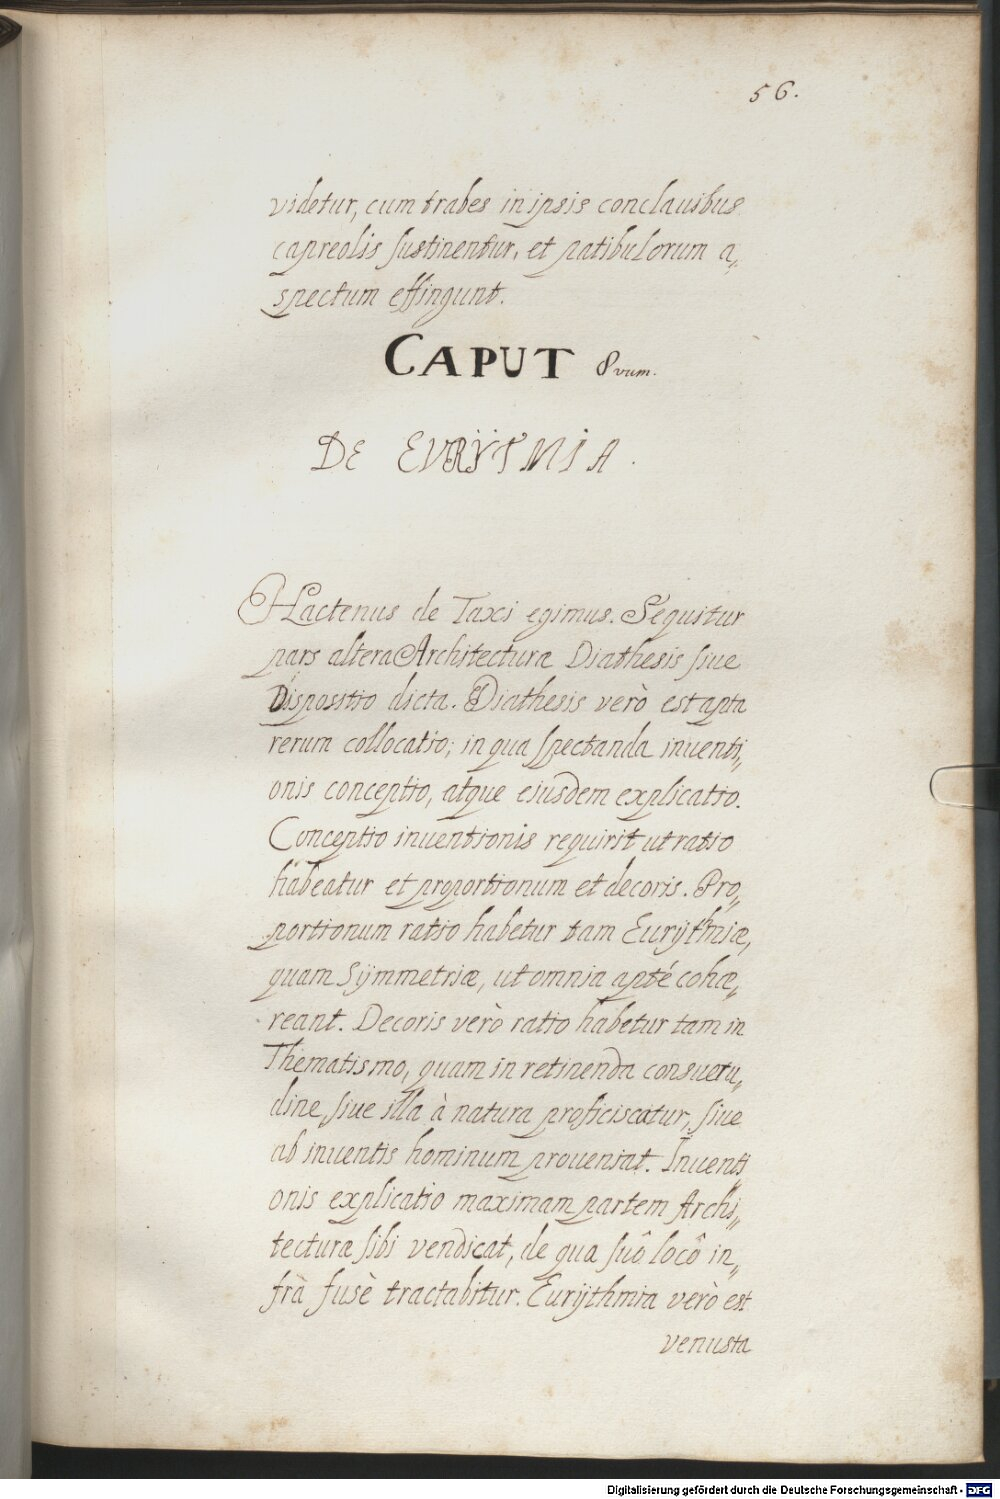 56.
videtur, cum trabes in ipsis conclauibus
capreolis sustinentur, et patibulorum a„
spectum effingunt.
CAPUT 8vum.
DE EVRŸTMIA.
Hactenus de Taxi egimus. Sequitur
pars altera Architecturæ Diathesis siue
Dispositio dicta. Diathesis verò est apta
rerum collocatio; in qua spectanda inuenti„
onis conceptio, atque eiusdem explicatio.
Conceptio inuentionis requirit ut ratio
habeatur et proportionum et decoris. Pro„
portionum ratio habetur tam Eurÿthmiæ,
quam Sÿmmetriæ, ut omnia apté cohæ„
reant. Decoris verò ratio habetur tam in
Thematismo, quam in retinenda consuetu„
dine, siue illa à natura proficiscatur, siue
ab inuentis hominum proueniat. Inuenti„
onis explicatio maximam partem Archi„
tectura sibi vendicat, de qua suô locô in„
frà fusè tractabitur. Eurÿthmia verò est
venusta
Digitalisierung gefördert durch die Deutsche Forschungsgemeinschaft - DFG